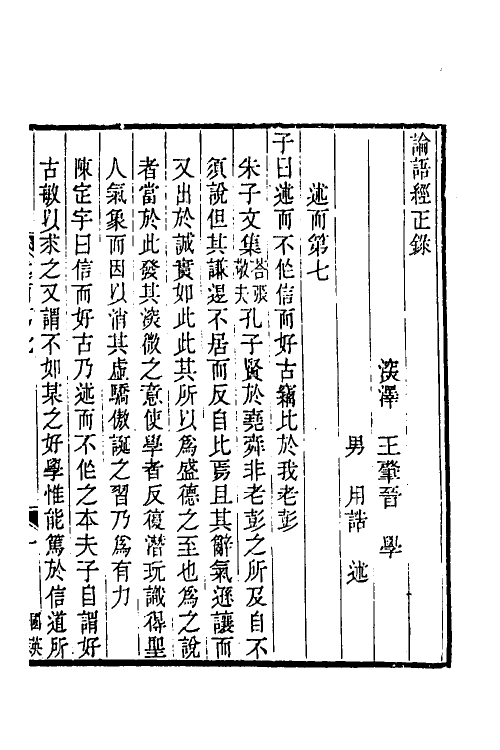 論語經正錄
深澤　王肇晉　學
男　用誥　述
述而第七
子曰述而不作信而好古竊比於我老彭
朱子文集答張敬夫孔子賢於堯舜非老彭之所及自不
須說但其謙遜不居而反自比焉且其辭氣遜讓而
又出於誠實如此此其所以爲盛德之至也爲之說
者當於此發其深微之意使學者反復潛玩識得聖
人氣象而因以消其虛驕傲誕之習乃爲有力
陳定宇曰信而好古乃述而不作之本夫子自謂好
古敏以求之又謂不如某之好學惟能篤於信道所